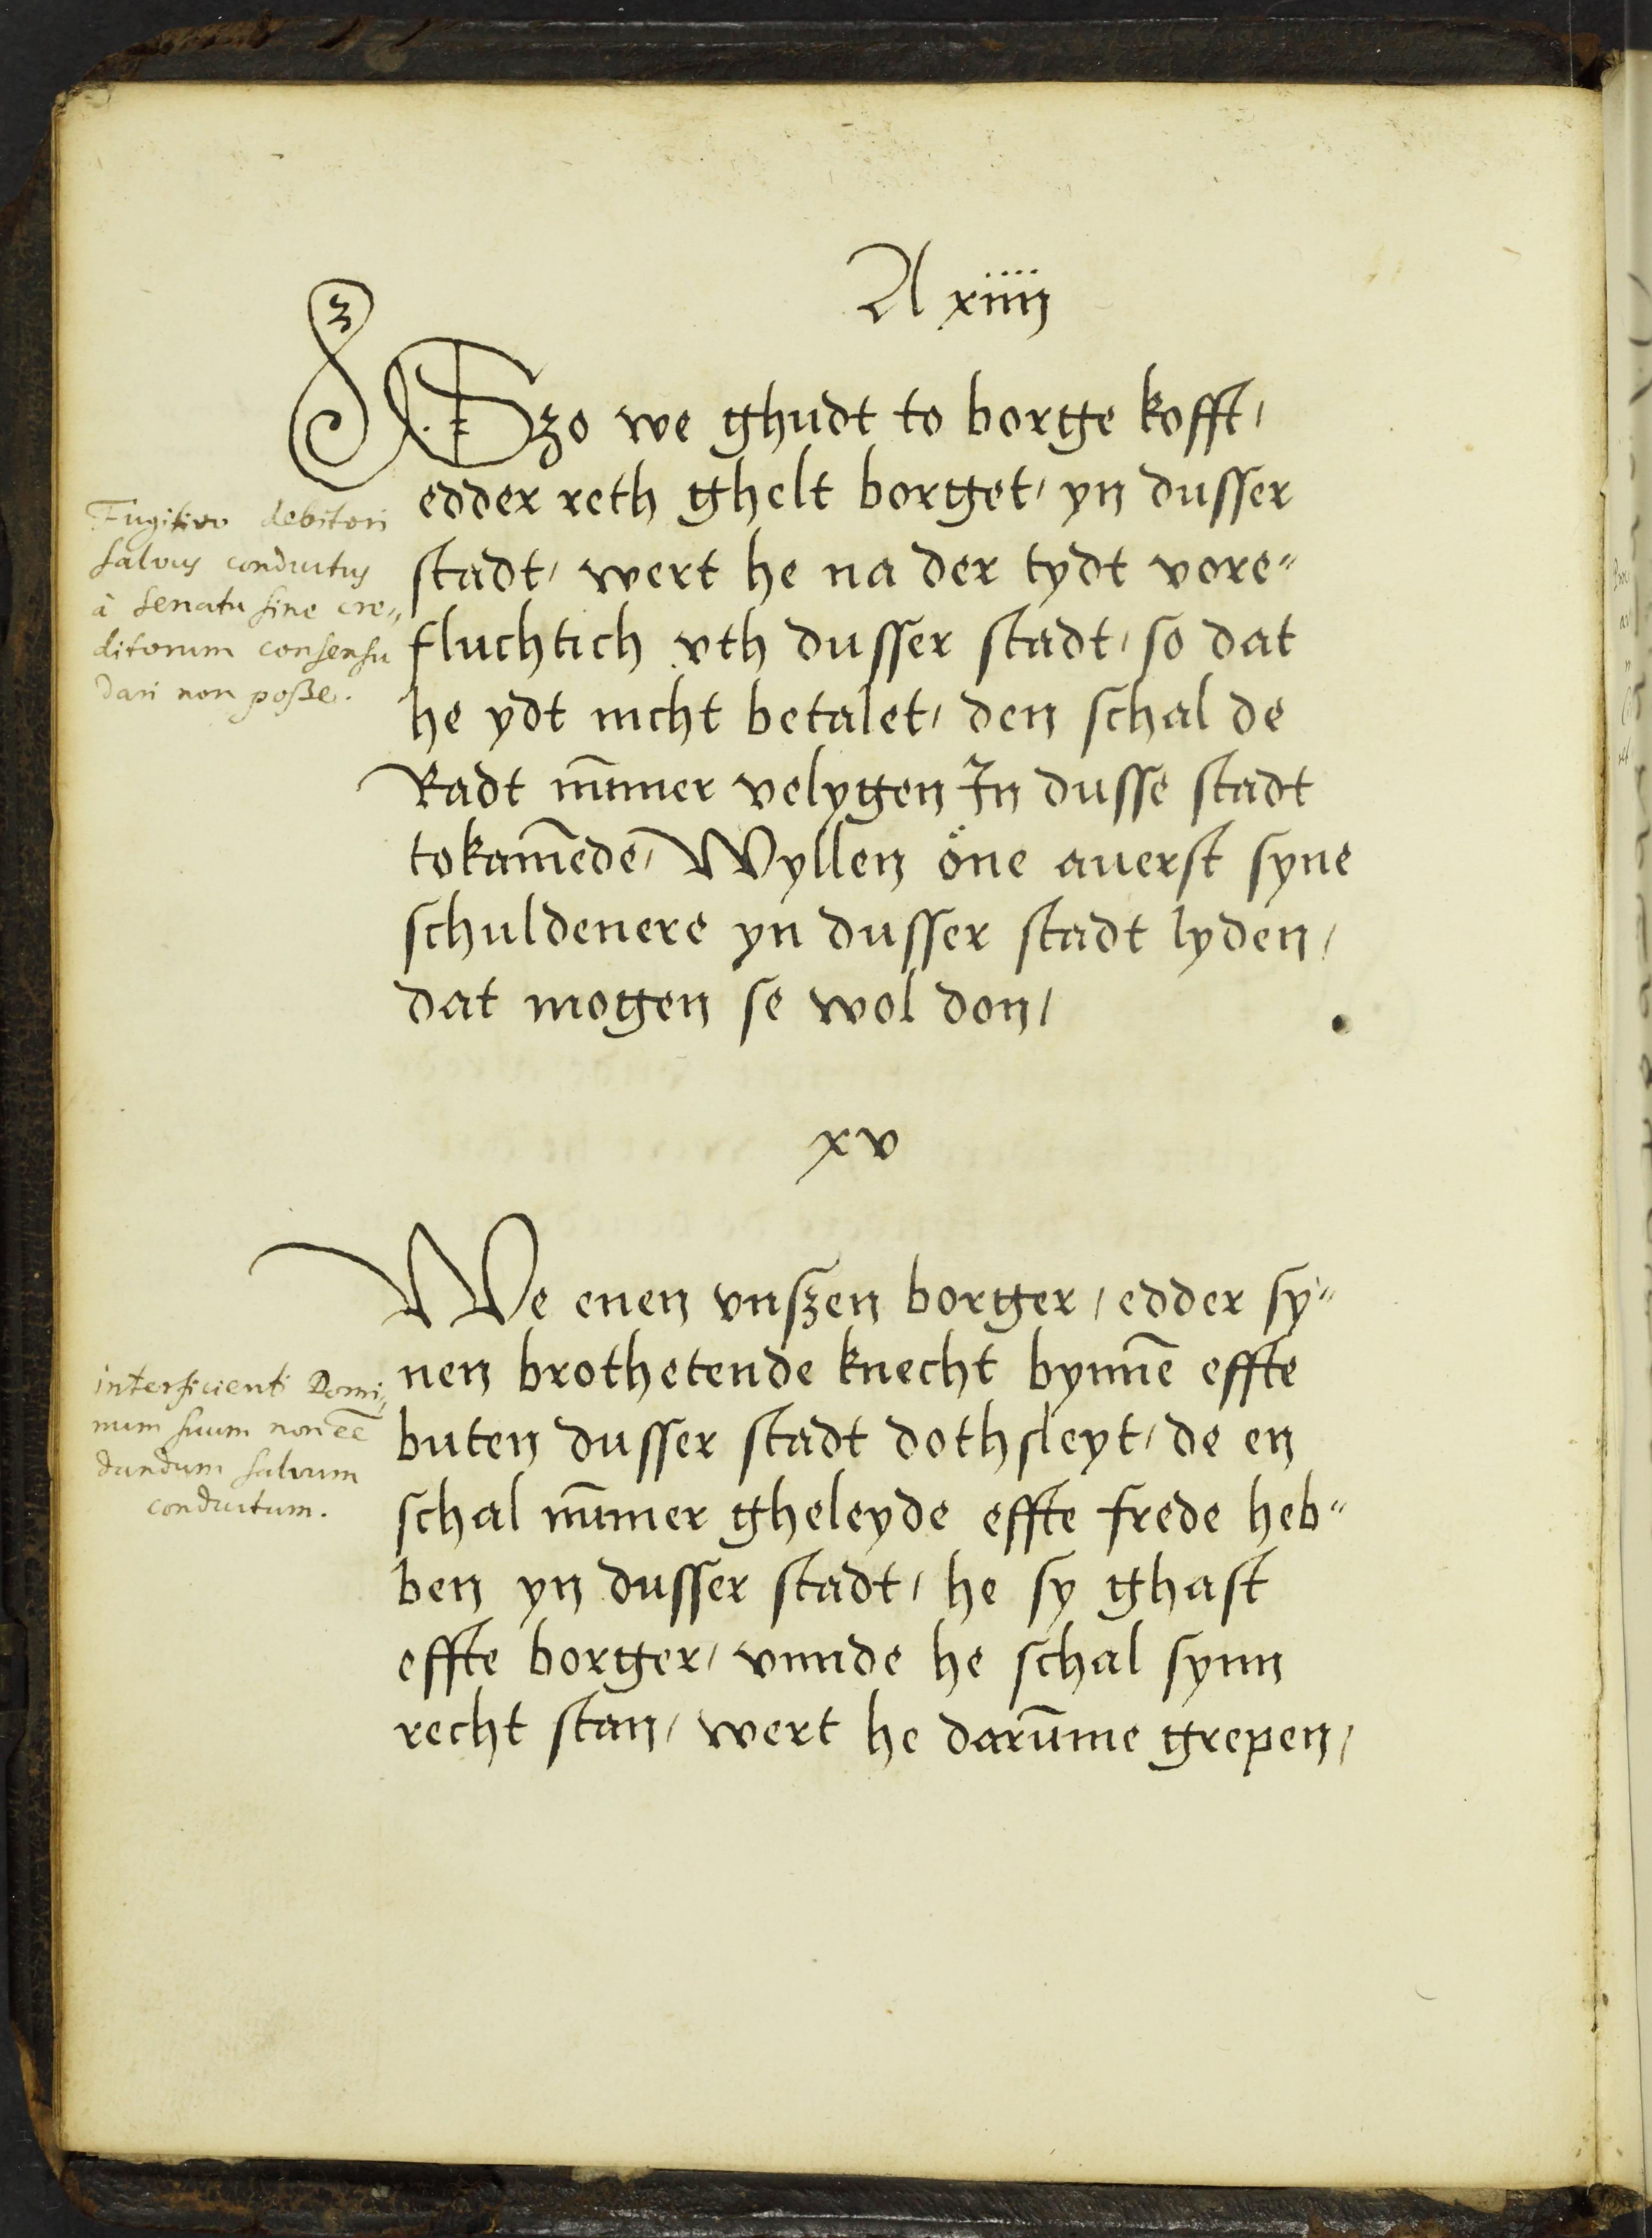 A xiiij
Szo we ghudt to borge kofft/
edder reth ghelt borget/ yn dusser
stadt/ wert he na der tydt vore"
fluchtich vth dusser stadt/ so dat
he ydt nicht betalet/ den schal de
Radt nūmer velygen In dusse stadt
tokamēde/ Wyllen öne auerst syne
schuldenere yn dusser stadt lyden/
dat mogen se wol don/
Fugitivo debitori
salvus conductus
à senatu sine cre„
ditorum consensu
dari non poße.
xv
We enen vnszen borger/ edder sy"
nen brothetende knecht bynnē effte
buten dusser stadt dothsleyt/ de en
schal nūmer gheleyde effte frede heb"
ben yn dusser stadt/ he sy ghast
effte borger/ vnnde he schal synn
recht stan/ wert he darūme grepen/
interficienti Domi„
num suum non eē
dandum salvum
conductum.